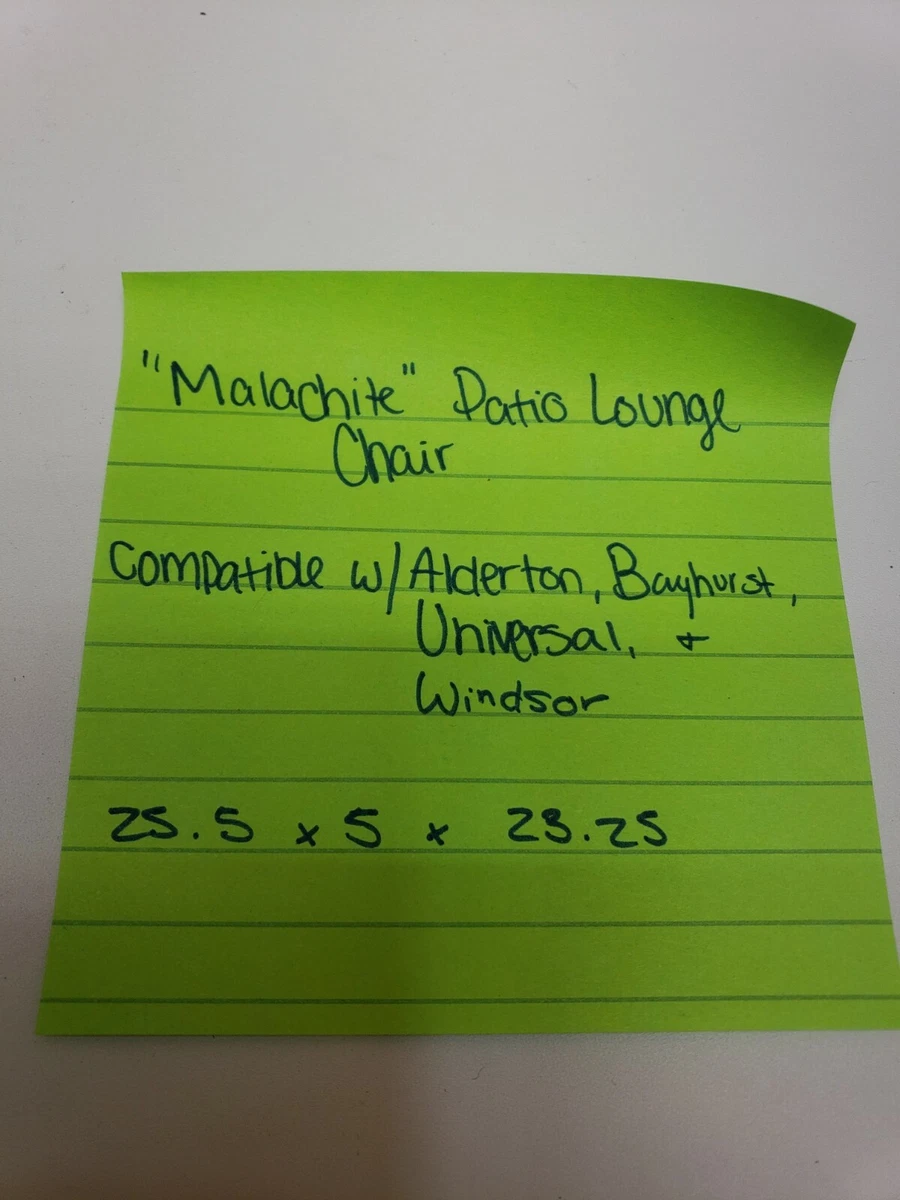 "Malachite" Patio Lounge
Chair
Compatible w/ Alderton, Bayhurst,
Universal, +
Windsor
25.5 x 5 x 23.25